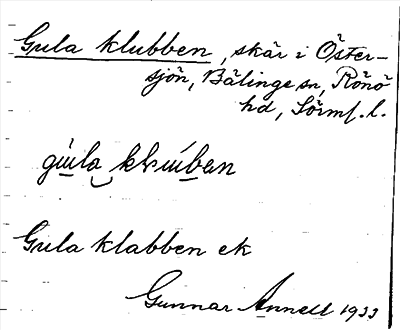 Gula klubben, skär i Öster-
sjön, Bälinge sn, Rönö
hd, Sörml. l.
gula
Gula klabben ek
Gunnar Annell 1933